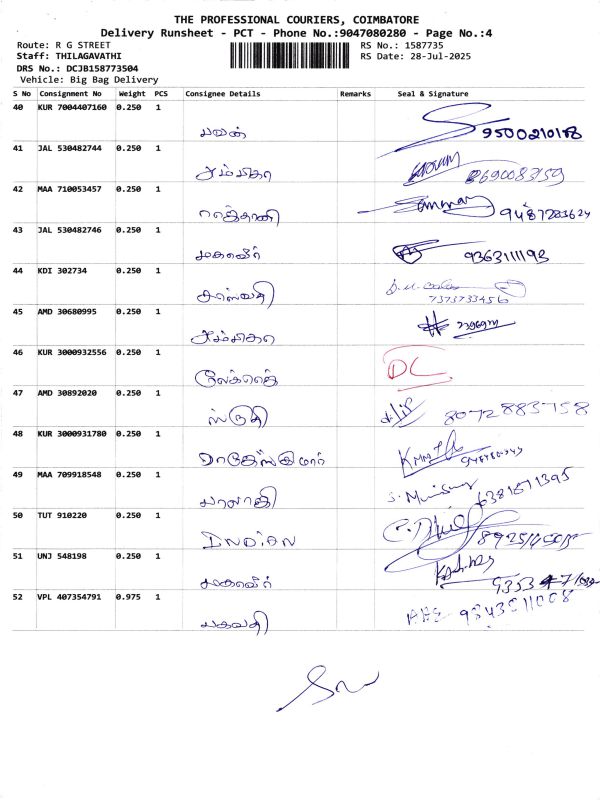 THE PROFESSIONAL COURIERS, COIMBATORE
Delivery Runsheet - PCT - Phone No.:9047080280 - Page No.:4
Route: R G STREET RS No.: 1587735
Staff: THILAGAVATHI RS Date: 28-Jul-2025
DRS No.: DCJB158773504
Vehicle: Big Bag Delivery
S No Consignment No Weight PCS Consignee Details Remarks Seal & Signature
40 KUR 7004407160 0.250 1
9500210118
41 JAL 530482744 0.250 1
8690083159
42 MAA 710053457 0.250 1
9487283624
43 JAL 530482746 0.250 1
மகாவீர் 9363111193
44 KDI 302734 0.250 1
சரஸ்வதி
7373733456
45 AMD 30680995 0.250 1
46 KUR 3000932556 0.250 1
DC
47 AMD 30892020 0.250 1
ஸ்ருதி 8072883758
48 KUR 3000931780 0.250 1
ராகேஸ்குமார்
49 MAA 709918548 0.250 1
பாலாஜி 6381571395
50 TUT 910220 0.250 1
INDIAN
51 UNJ 548198 0.250 1
மகாவீர்
52 VPL 407354791 0.975 1
பகவதி 9843511008